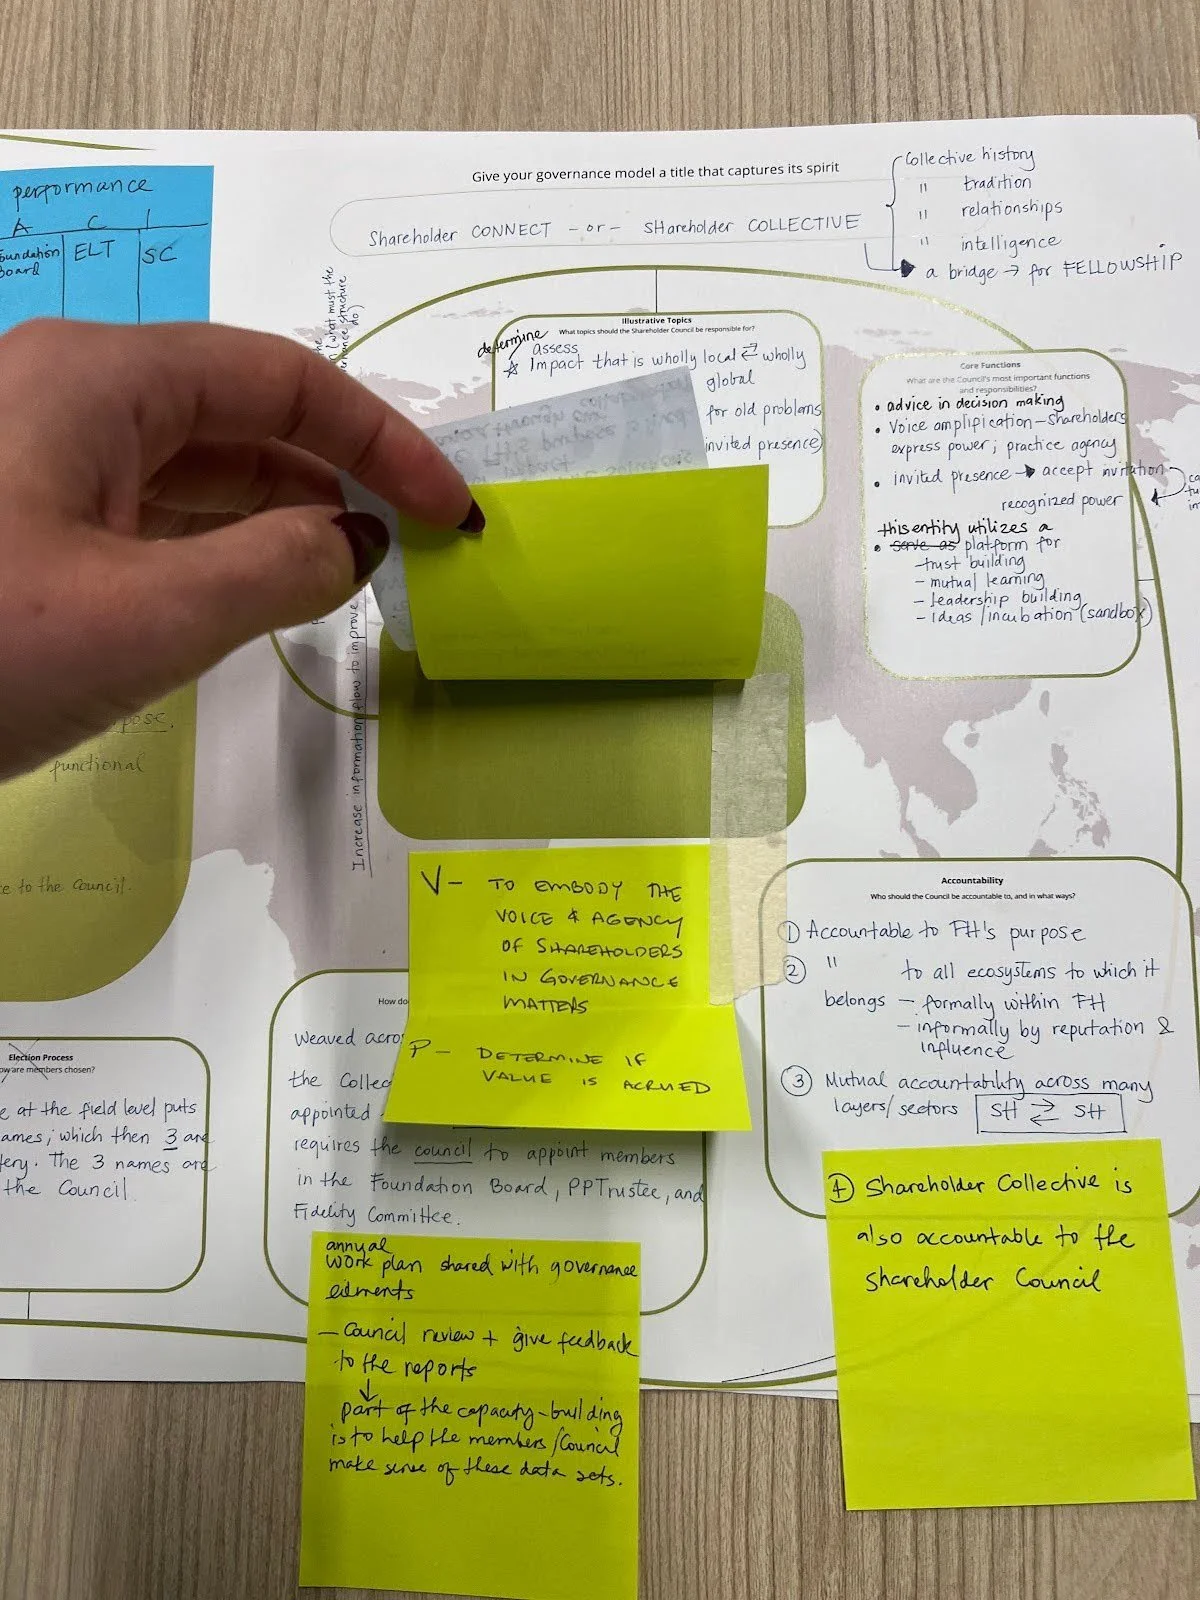 performance
A C I
oundation
Board
ELT
SC
Give your governance model a title that captures its spirit
Shareholder CONNECT - or - SHareholder COLLECTIVE
Collective history
" tradition
" relationships
" intelligence
a bridge → for FELLOWSHIP
(what must the
structure
do)
Increase information flow to improve
Illustrative Topics
What topics should the Shareholder Council be responsible for?
determine
assess
☆ Impact that is wholly local ⇄ wholly
global
for old problems
invited presence)
Core Functions
What are the Council's most important functions
and responsibilities?
• advice in decision making
• Voice amplification – Shareholders
express power; practice agency
• invited presence → accept invitation
recognized power
this entity utilizes a
• serve as platform for
- trust building
- mutual learning
- leadership building
- ideas / incubation (sandbox)
pose.
functional
e to the Council.
V – TO EMBODY THE
VOICE & AGENCY
OF SHAREHOLDERS
IN GOVERNANCE
MATTERS
P – DETERMINE IF
VALUE IS ACRUED
Accountability
Who should the Council be accountable to, and in what ways?
① Accountable to FH's purpose
② " to all ecosystems to which it
belongs – formally within FH
– informally by reputation &
influence
③ Mutual accountability across many
layers/sectors SH ⇄ SH
④ Shareholder Collective is
also accountable to the
Shareholder Council
Election Process
ow are members chosen?
e at the field level puts
ames, which then 3 are
tery. The 3 names are
the Council.
How do
Weaved acro
the Collec
appointed
requires the council to appoint members
in the Foundation Board, PPTrustee, and
Fidelity Committee.
annual
work plan shared with governance
elements
– Council review + give feedback
to the reports
↓
part of the capacity-building
is to help the members/Council
make sense of these data sets.